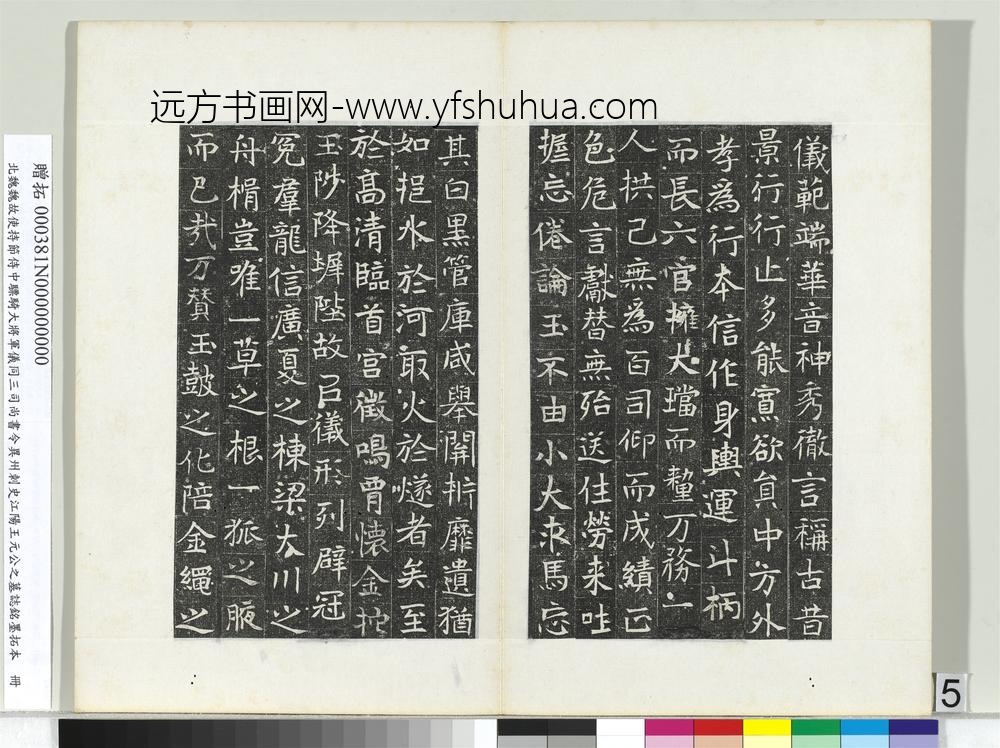 远方书画网-www.yfshuhua.com
儀範端華音神秀徹言稱古昔
景行行止多能寡欲員中方外
孝為行本信作身輿運斗柄
而長六官擁大璫而釐万務一
人拱己無為百司仰而成績正
色危言獻替無殆送往勞来吐
握忘倦論玉不由小大求馬忘
其白黑管庫咸舉關析靡遺猶
如挹水於河取火於燧者矣至
於高清臨首宮徵鳴胷懷金拖
玉陟降墀陛故以儀形列辟冠
冕羣龍信廣夏之棟梁大川之
舟楫豈唯一草之根一狐之腋
而已哉方賛玉鼓之化陪金繩之
贈拓 000381N000000000
北魏魏故使持節侍中驃騎大將軍儀同三司尚書令冀州刺史江陽王元公之墓誌銘墨拓本 冊
5